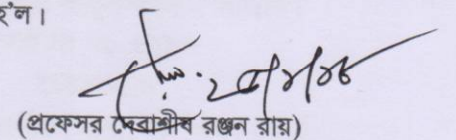 হ'ল।
(প্রফেসর দেবাশীষ রঞ্জন রায়)